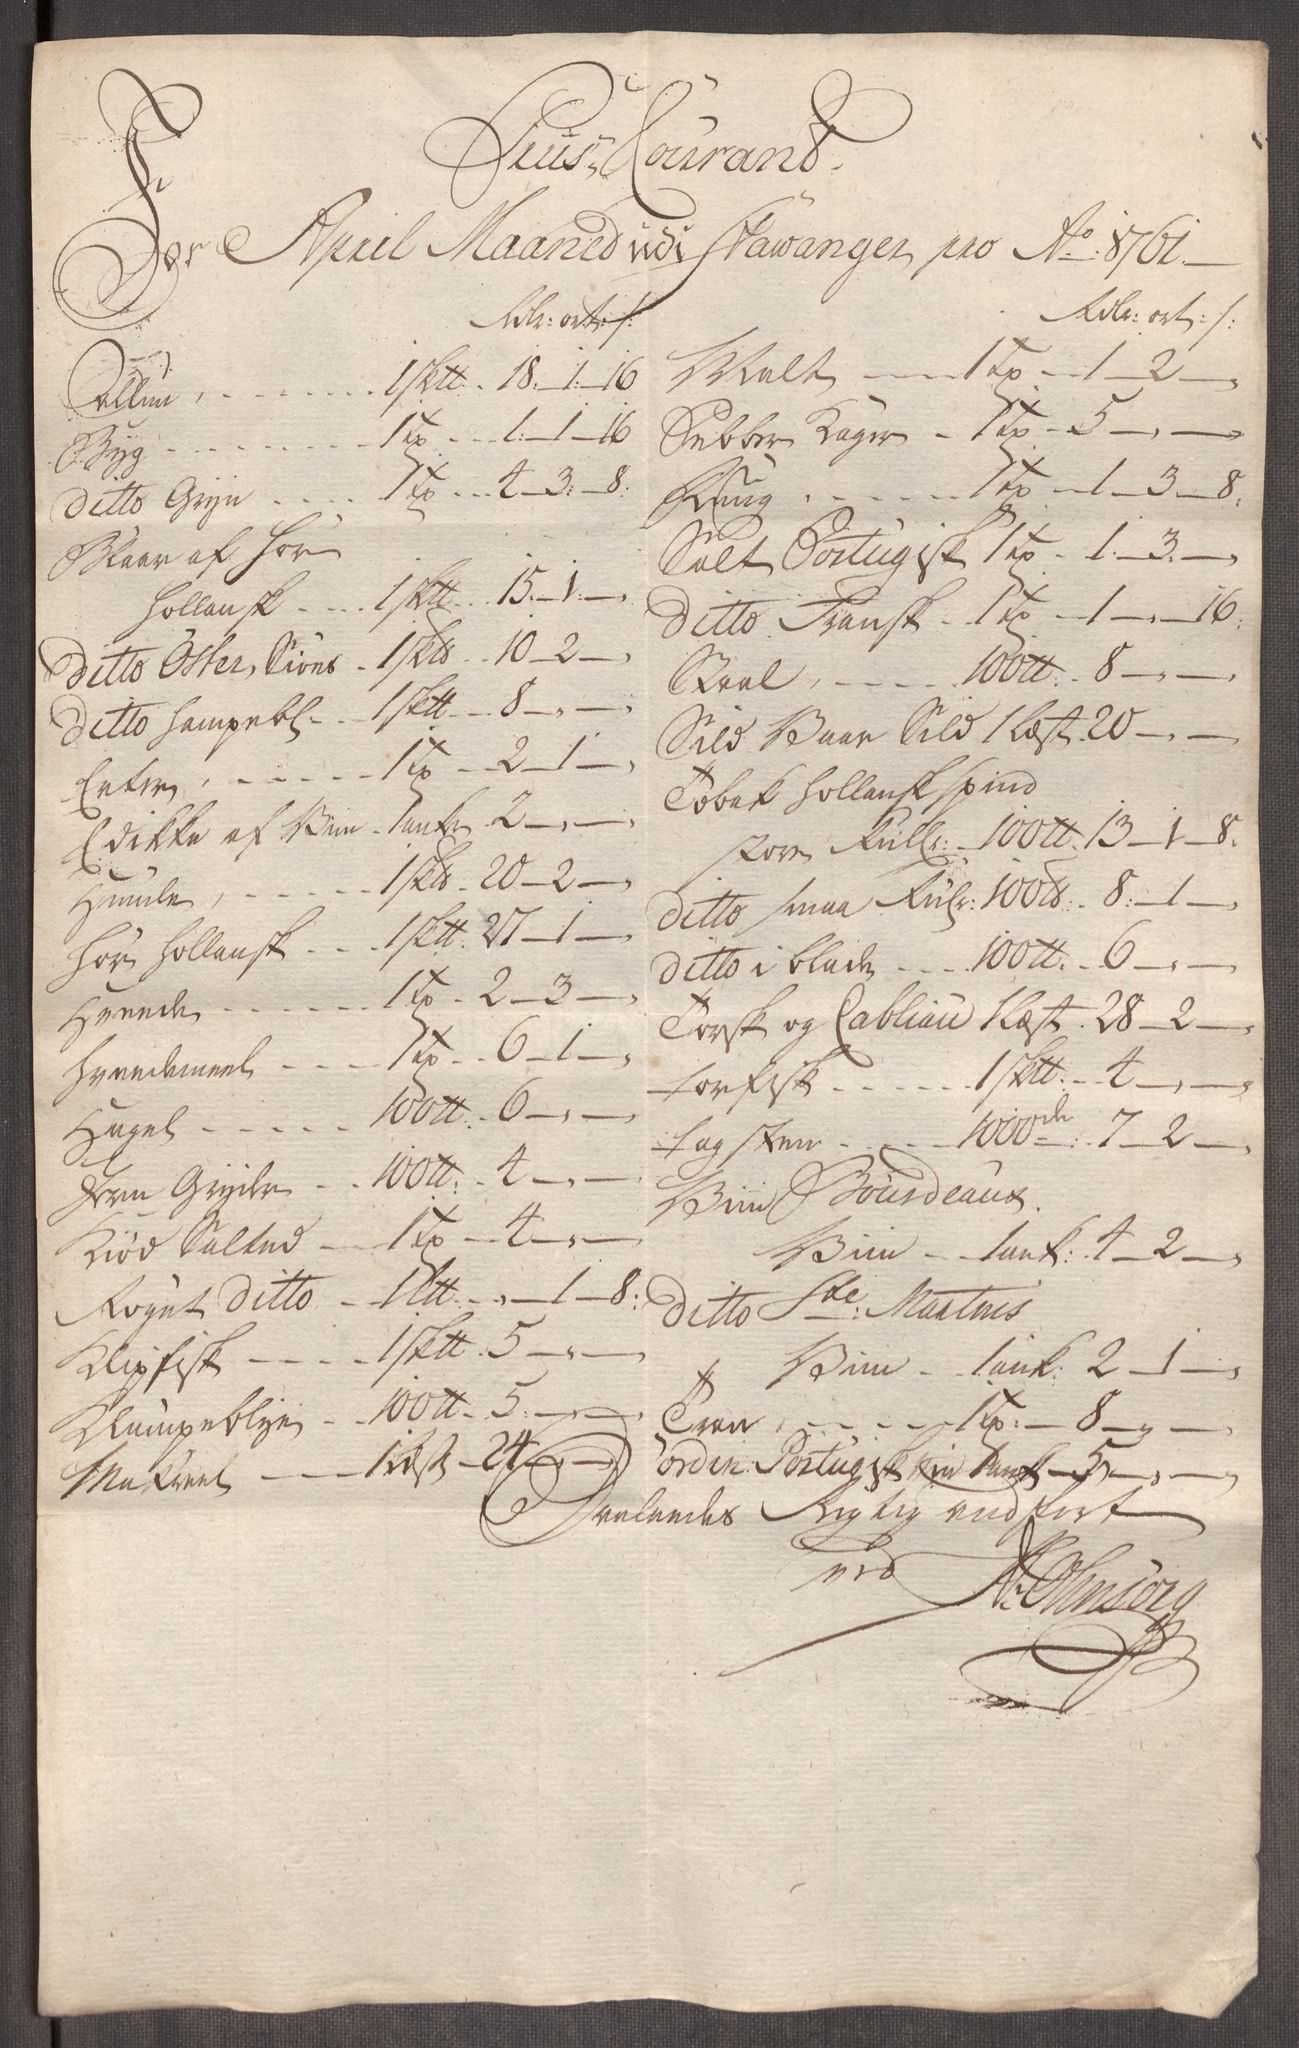 Priis Courand
For April Maaned udi Stawanger pro Ao: 1761.
Rdlr: ort: s:
Allun 1 sk℔ 18. 1. 16
Byg 1 Tø 1. 1 16
ditto Gryn 1 Tø 4 3. 8.
Blaar af Hør
Hollansk 1 sk℔ 15. 1.
ditto Øster Siøns 1 sk℔ 10 2
ditto Hampebl. 1 sk℔ 8
Erter 1 Tø 2 1
Edikke af Viin 1 ank 2
Humle 1 sk℔ 20 2
Hør Hollansk 1 sk℔ 27 1
Hvede 1 Tø 2 3
Hvedemeel 1 Tø 6 1
Hagel 100 ℔ 6
Jern Gryder 100 ℔ 4
Kiød Salted 1 Tø 4
Røget ditto 1 L℔ 1 8.
Klipfisk 1 sk℔ 5
Klumpeblye 100 ℔ 5
Makreel 1 Læst 24
Rdlr: ort: s:
Malt 1 Tø 1 2
Pebber Kager 1 Tø 5
Rug 1 Tø 1 3 8.
Salt Portugisk 1 Tø 1. 3.
ditto Fransk 1 Tø 1 16.
Staal 100 ℔ 8
Sild Vaar Sild 1 Læst 20
Tobak Hollansk spind
store Rull: 100 ℔ 13 1 8.
ditto smaa Rull: 100 ℔ 8. 1
ditto i blade 100 ℔ 6
Torsk og Cabliau 1 Læst 28 2
Torfisk 1 sk℔ 4
Tagsten 1000de 7 2
Viin Bourdeaux.
Viin 1 ank: 4 2
ditto Ste: Martins
Viin 1 ank: 2 1
Tran 1 Tø: 8
ordin: Portugisk viin 1 ank 5
Saaledes Rigtig andført
ved
A: Ohmsorg